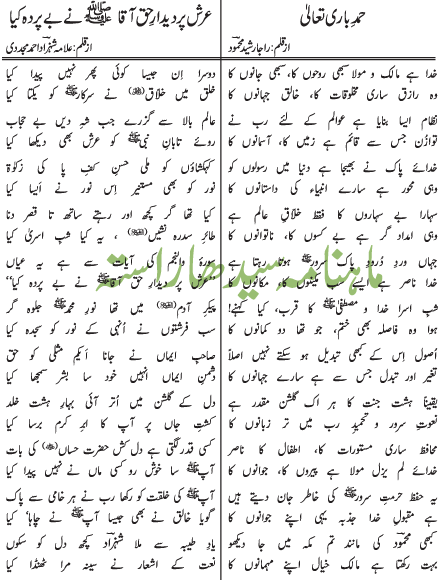 حمدِ باری تعالیٰ
از قلم: راجا رشید محمود
خدا ہے مالک و مولا سبھی روحوں کا، سبھی جانوں کا
وہ رازق ساری مخلوقات کا، خالق جہانوں کا
نظام ایسا بنایا ہے عوالم کے لئے رب نے
توازن جس سے قائم ہے زمیں کا، آسمانوں کا
خدائے پاک نے بھیجا ہے دنیا میں رسولوں کو
وہی محور ہے سارے انبیاء کی داستانوں کا
سہارا بے سہاروں کا فقط خلاقِ عالم ہے
وہی امداد گر ہے بے کسوں کا، ناتوانوں کا
جہاں وردِ درودِ پاکِ سرورﷺ ہوتا رہتا ہے
خدا ناصر ہے ایسے سب مکینوں کا، مکانوں کا
شبِ اسرا خدا و مصطفیٰﷺ کا قرب، کیا کہنے!
ہوا وہ فاصلہ بھی ختم، جو تھا دو کمانوں کا
اصول اس کے کبھی تبدیل ہو سکتے نہیں اصلاً
تغیر اور تبدل جس سے ہے سارے جہانوں کا
یقیناً ہشت جنت کا ہر اک گلشن مقدر ہے
نعوتِ سرور و تحمیدِ رب میں تر زبانوں کا
محافظ ساری مستورات کا، اطفال کا ناصر
خدائے لم یزل مولا ہے پیروں کا، جوانوں کا
یہ حفظِ حرمتِ سرورﷺ کی خاطر جان دیتے ہیں
ہے مقبولِ خدا جذبہ یہی اپنے جوانوں کا
کبھی محمود کی مانند تم مکہ میں جا دیکھو
بہت رکھتا ہے مالک خیال اپنے مہمانوں کا
عرش پر دیدارِ حق آقا ﷺ نے بے پردہ کیا
از قلم: علامہ شہزاد احمد مجددی
دوسرا اِن جیسا کوئی پھر نہیں پیدا کیا
خلق میں خلاق نے سرکارﷺ کو یکتا کیا
عالمِ بالا سے گزرے جب شہِ دیں بے حجاب
روئے تابانِ نبیﷺ کو عرش بھی دیکھا کیا
کہکشاؤں کو ملی حسنِ کفِ پا کی زکوٰۃ
نور کو بھی مستنیر اِس نور نے ایسا کیا
کیا تھا گر کچھ اور رہتے ساتھ تا قصرِ دنا
طائرِ سدرہ نشیں، یہ کیا شبِ اسریٰ کیا
سورۂ والنجم کی آیات سے ہے یہ عیاں
”عرش پر دیدارِ حق آقاﷺ نے بے پردہ کیا“
پیکرِ آدم میں تھا نورِ محمدﷺ جلوہ گر
سب فرشتوں نے اُنہی کے نور کو سجدہ کیا
صاحبِ ایماں نے جانا اَیکم مثلی کو حق
دشمنِ ایماں انہیں خود سا بشر سمجھا کیا
دل کے گلشن میں اُتر آئی بہارِ ہشت خلد
کشتِ جاں پر آپ کا ابرِ کرم برسا کیا
کسی قدر لگتی ہے دل کش حضرت حساں کی بات
آپﷺ سا خوش رو کسی ماں نے نہیں پیدا کیا
آپﷺ کی خلقت کو رکھا رب نے ہر خامی سے پاک
گویا خالق نے بھی جیسا آپﷺ نے چاہا، کیا
یادِ طیبہ سے ملا شہزاد کچھ دل کو سکوں
نعت کے اشعار نے سینہ مرا ٹھنڈا کیا
ماہنامہ سیدھا راستہ